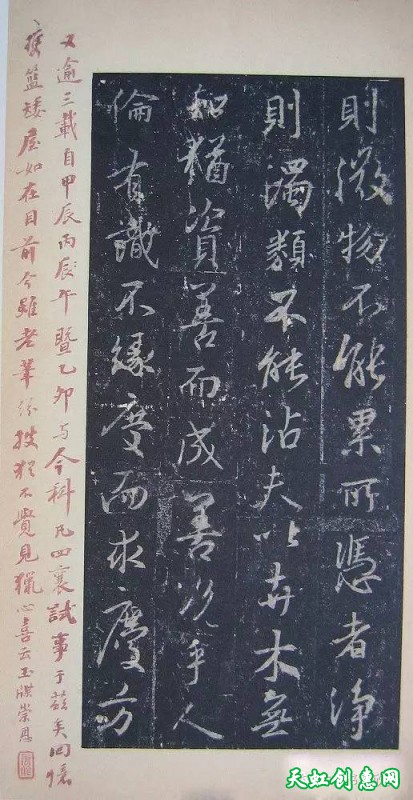 則微物不能累所憑者淨
則濁類不能沾夫以卉木無
知猶資善而成善況乎人
倫有識不緣慶而求慶方
又逾三載自甲辰丙午暨乙卯与今科凡四襄試事于茲矣回憶
籃矮屋如在目前今雖老不覺見獵心喜云玉牒崇恩
天虹创惠网